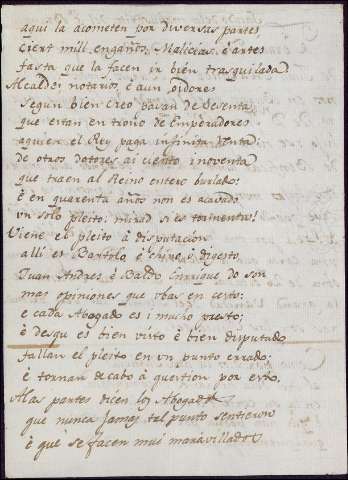 aqui la acometen por diversas partes
Cient mill engaños, Malicias, è artes
fasta que la facen ir bien trasquilada.
Alcaldes notarios è aun oidores
Segun bien Creo pasan de Sesenta
que estan en trono de Emperadores
aquien el Rey paga infinita renta
de otros dotores ai ciento inoventa
que traen al Reino entero burlado:
è en quarenta años non es acavado
vn solo pleito: mirad si es tormenta!
Viene el pleito à disputacion
alli es Bartolo è Chino è digesto
Juan Andres è Baldo Enrique do son
mas opiniones que vbas en cesto:
e cada Abogado es i mucho presto;
è desque es bien visto è bien disputado
fallan el pleito en vn punto errado:
è tornan de cabo à question por esto.
A las partes dicen los Abogados
que nunca Jamas tal punto sentieron
è que se facen mui maravillados